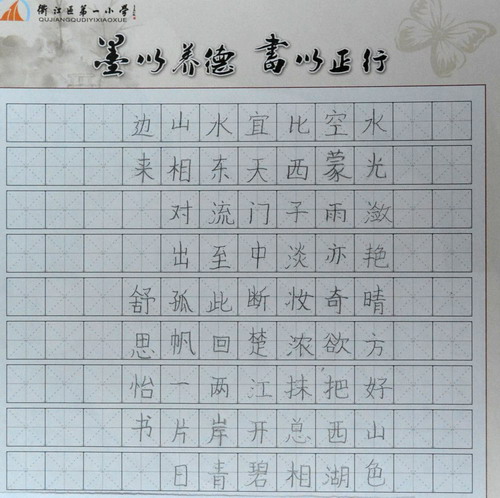 衢江区第一小学
QUJIANGQUDIYIXIAOXUE
墨以养德 書以正行
水光潋艳晴方好山色
空蒙雨亦奇欲把西湖
比西子淡妆浓抹总相
宜天门中断楚江开碧
水东流至此回两岸青
山相对出孤帆一片日
边来 舒思怡书